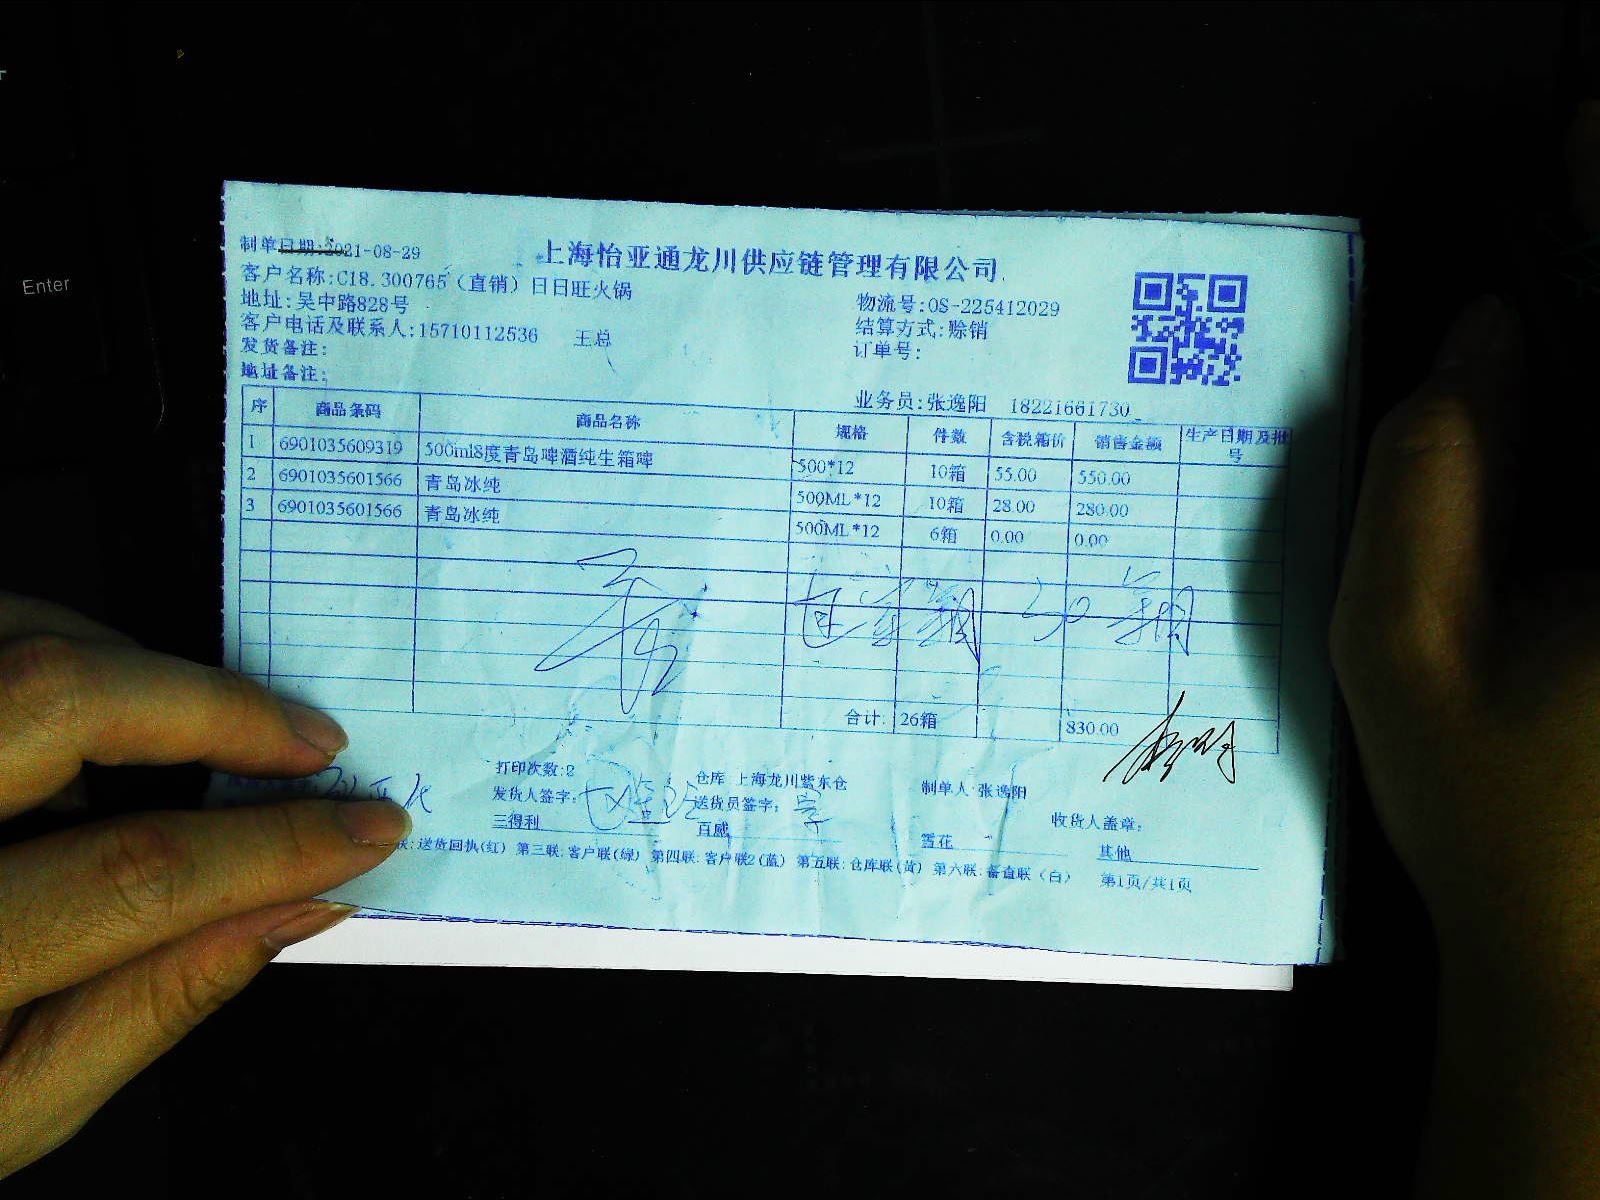 Enter
制单日期:2021-08-29
上海怡亚通龙川供应链管理有限公司
客户名称:C18.300765（直销）日日旺火锅
地址:吴中路828号
物流号:OS-225412029
客户电话及联系人:15710112536 王总
结算方式:赊销
发货备注:
订单号:
地址备注:
业务员:张逸阳 18221661730
序 商品条码 商品名称 规格 件数 含税箱价 销售金额 生产日期及批号
1 6901035609319 500ml8度青岛啤酒纯生箱啤 500*12 10箱 55.00 550.00
2 6901035601566 青岛冰纯 500ML*12 10箱 28.00 280.00
3 6901035601566 青岛冰纯 500ML*12 6箱 0.00 0.00
合计: 26箱 830.00
打印次数:2 仓库:上海龙川紫东仓 制单人:张逸阳
发货人签字: 送货员签字: 收货人盖章:
三得利 百威 雪花 其他
联:送货回执(红) 第三联:客户联(绿) 第四联:客户联2(蓝) 第五联:仓库联(黄) 第六联:备查联（白） 第1页/共1页